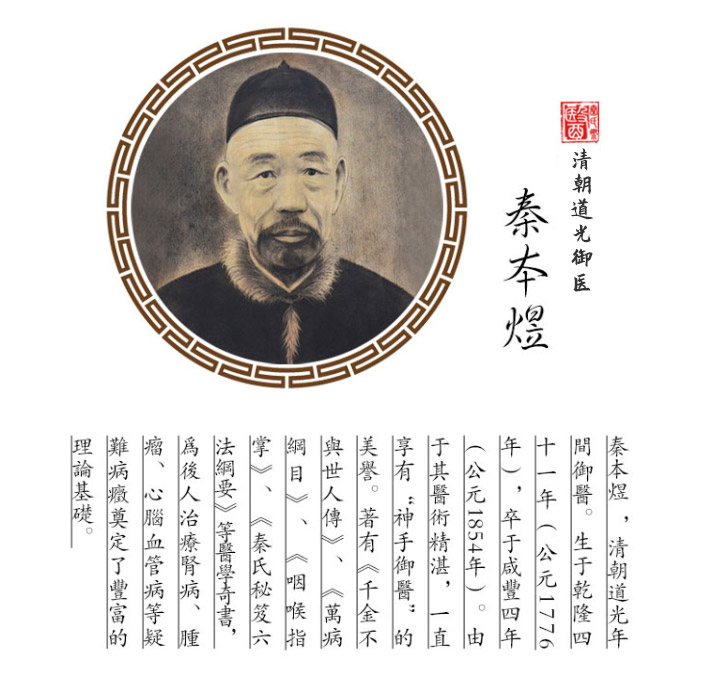 清朝道光御医
秦本煜
秦本煜，清朝道光年
間御醫。生于乾隆四
十一年（公元1776
年），卒于咸豐四年
（公元1854年）。由
于其醫術精湛，一直
享有“神手御醫”的
美譽。著有《千金不
與世人傳》、《萬病
綱目》、《咽喉指
掌》、《秦氏秘笈六
法綱要》等醫學奇書，
爲後人治療腎病、腫
瘤、心腦血管病等疑
難病癥奠定了豐富的
理論基礎。